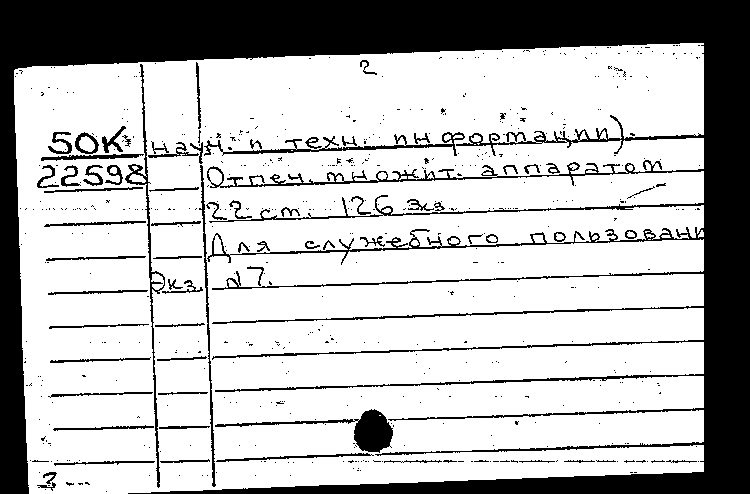 2
50К науч. и техн. информации).
22598 Отпеч. множит. аппаратом
22 ст. 126 экз.
Для служебного пользовани
Экз. №7.
3 --